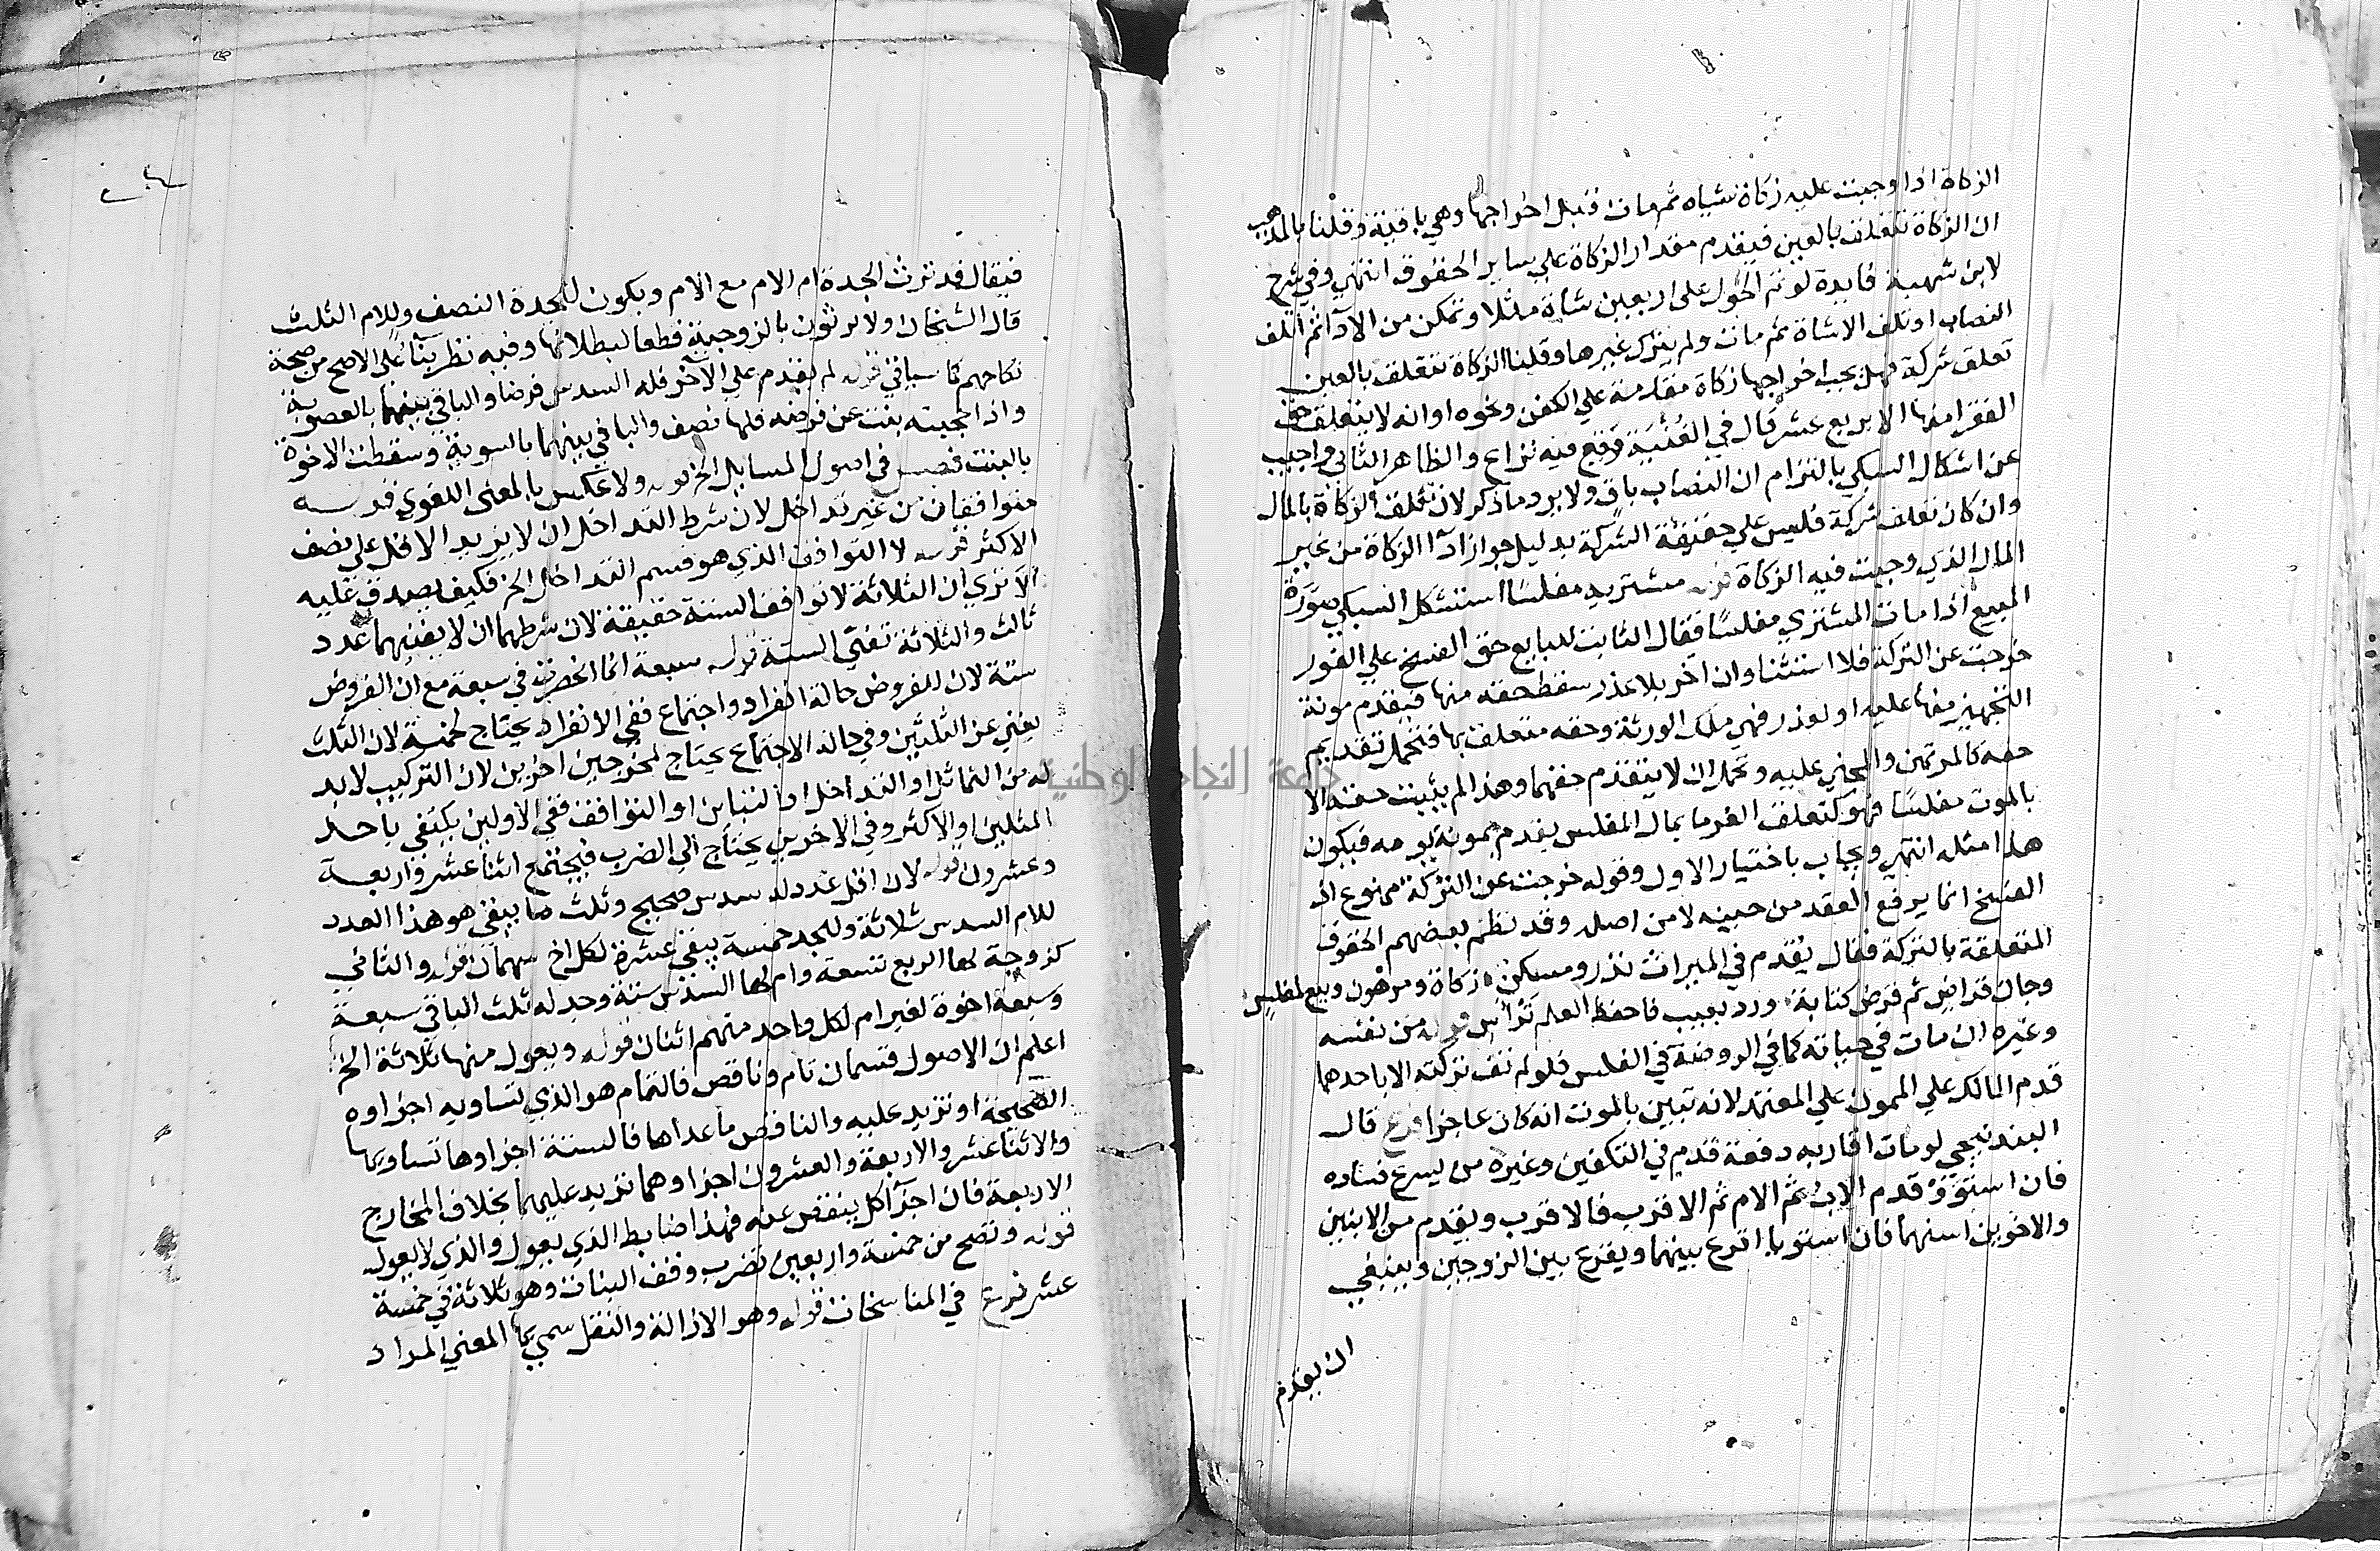 الزكاة اذا وجبت عليه زكاة شياه ثم مات قبل اخراجها وهي باقية وقلنا بالمذهب
ان الزكاة تتعلق بالعين فيقدم مقدار الزكاة علي ساير الحقوق انتهي وفي شرح
لابن شهبة فايدة لو تم الحول على اربعين شاة مثلا وتمكن من الادآ ثم اتلف
النصاب او تلف الا شاة ثم مات ولم يترك غيرها وقلنا الزكاة تتعلق بالعين
تعلق شركة فهل يجب اخراجها زكاة مقدمة علي الكفن ونحوه او انه لا يتعلق حق
الفقرا منها الا بربع عشر قال في الغنية وقع فيه نزاع والظاهر الثاني واجيب
عن اشكال السبكي بالتزام ان النصاب باق ولا يرد ما ذكر لان تعلق الزكاة بالمال
وان كان تعلق شركة فليس علي حقيقة الشركة بدليل جواز ادآ الزكاة من غير
المال الذي وجبت فيه الزكاة قوله مشتريه مفلسا استشكل السبكي صورة
المبيع اذا مات المشتري مفلسا فقال الثابت للبايع حق الفسخ علي الفور
خرجت عن التركة فلا استثنا وان اخر بلا عذر سقط حقه منها فيقدم مونة
التجهيز منها عليه او لعذر فهي ملك الورثة وحقه متعلق بها فتحمل تقديم
حقه كالمرتهن والمجني عليه وتحمل ان لا يتقدم حقهما وهذا لم يثبت حقه الا
بالموت مفلسا فهو كتعلق الغرما بمال المفلس يقدم بمونة يومه فيكون
هذا مثله انتهي ويجاب باختيار الاول وقوله خرجت عن التركة ممنوع اذ
الفسخ انما يرفع العقد من حينه لا من اصله وقد نظم بعضهم الحقوق
المتعلقة بالتركة فقال يقدم في الميراث نذر ومسكن زكاة ومرهون وبيع لمفلس
وجان قراض ثم قرض كتابة ورد بعيب فاحفظ العلم ترأس قوله من نفسه
وغيره ان مات في حياته كما في الروضة في الفلس فلو لم تف تركته الا باحدهما
قدم المالك علي الممون علي المعتمد لانه تبين بالموت انه كان عاجزا فرع قال
البندنيجي لو مات اقاربه دفعة قدم في التكفين وغيره من يسرع فساده
فان استووا قدم الاب ثم الام ثم الاقرب فالاقرب ويقدم من الابنين
والاخوين اسنهما فان استويا اقرع بينهما ويقرع بين الزوجين وينبغي
ان يقدم
فيقال قد ترث الجدة ام الام مع الام ويكون للجدة النصف وللام الثلث
قال الشيخان ولا يرثون بالزوجية قطعا لبطلانها وفيه نظر بنآ علي الاصح من صحة
نكاحهم كما سياتي قوله لم تقدم علي الاخر فله السدس فرضا والباقي بينهما بالعصوبة
واذا حجبته بنت عن فرضه فلها نصف والباقي بينهما بالسوية وسقطت الاخوة
بالبنت فصل في اصول المسايل الخ قوله ولا عكس بالمعنى اللغوي قوله
متوافقان من غير تداخل لان شرط التداخل ان لا يزيد الاقل علي نصف
الاكثر قوله لا التوافق الذي هو قسم التداخل الخ فكيف يصدق عليه
الا تري ان الثلاثة لا توافق الستة حقيقة لان شرطهما ان لا يفنيهما عدد
ثالث والثلاثة تفني الستة قوله سبعة انما انحصرت في سبعة مع ان الفروض
ستة لان للفروض حالة انفراد واجتماع ففي الانفراد يحتاج لخمسة لان الثلث
يغني عن الثلثين وفي حالة الاجتماع يحتاج لمخرجين اخرين لان التركيب لا بد
له من التماثل او التداخل او التباين او التوافق ففي الاولين يكتفي باحد
المثلين او الاكثر وفي الاخرين يحتاج الي الضرب فيجتمع اثنا عشر واربعة
وعشرون قوله لان اقل عدد له سدس صحيح وثلث ما يبقي هو هذا العدد
للام السدس ثلاثة وللجد خمسة يبقي عشرة لكل اخ سهمان قوله والثاني
كزوجة لها الربع تسعة وام لها السدس ستة وجد له ثلث الباقي سبعة
وسبعة اخوة لغير ام لكل واحد منهم اثنان قوله ويعول منها ثلاثة الخ
اعلم ان الاصول قسمان تام وناقص فالتام هو الذي تساويه اجزاوه
الصحيحة او تزيد عليه والناقص ما عداها فالستة اجزاوها تساويها
والاثنا عشر والاربعة والعشرون اجزاوهما تزيد عليهما بخلاف المخارج
الاربعة فان اجزآ كل ينقص عنه فهذا ضابط الذي يعول والذي لا يعول
قوله وتصح من خمسة واربعين تضرب وفق البنات وهو ثلاثة في خمسة
عشر فرع في المناسخات قوله وهو الازالة والنقل سمي بها المعني المراد
جامعة النجاح الوطنية